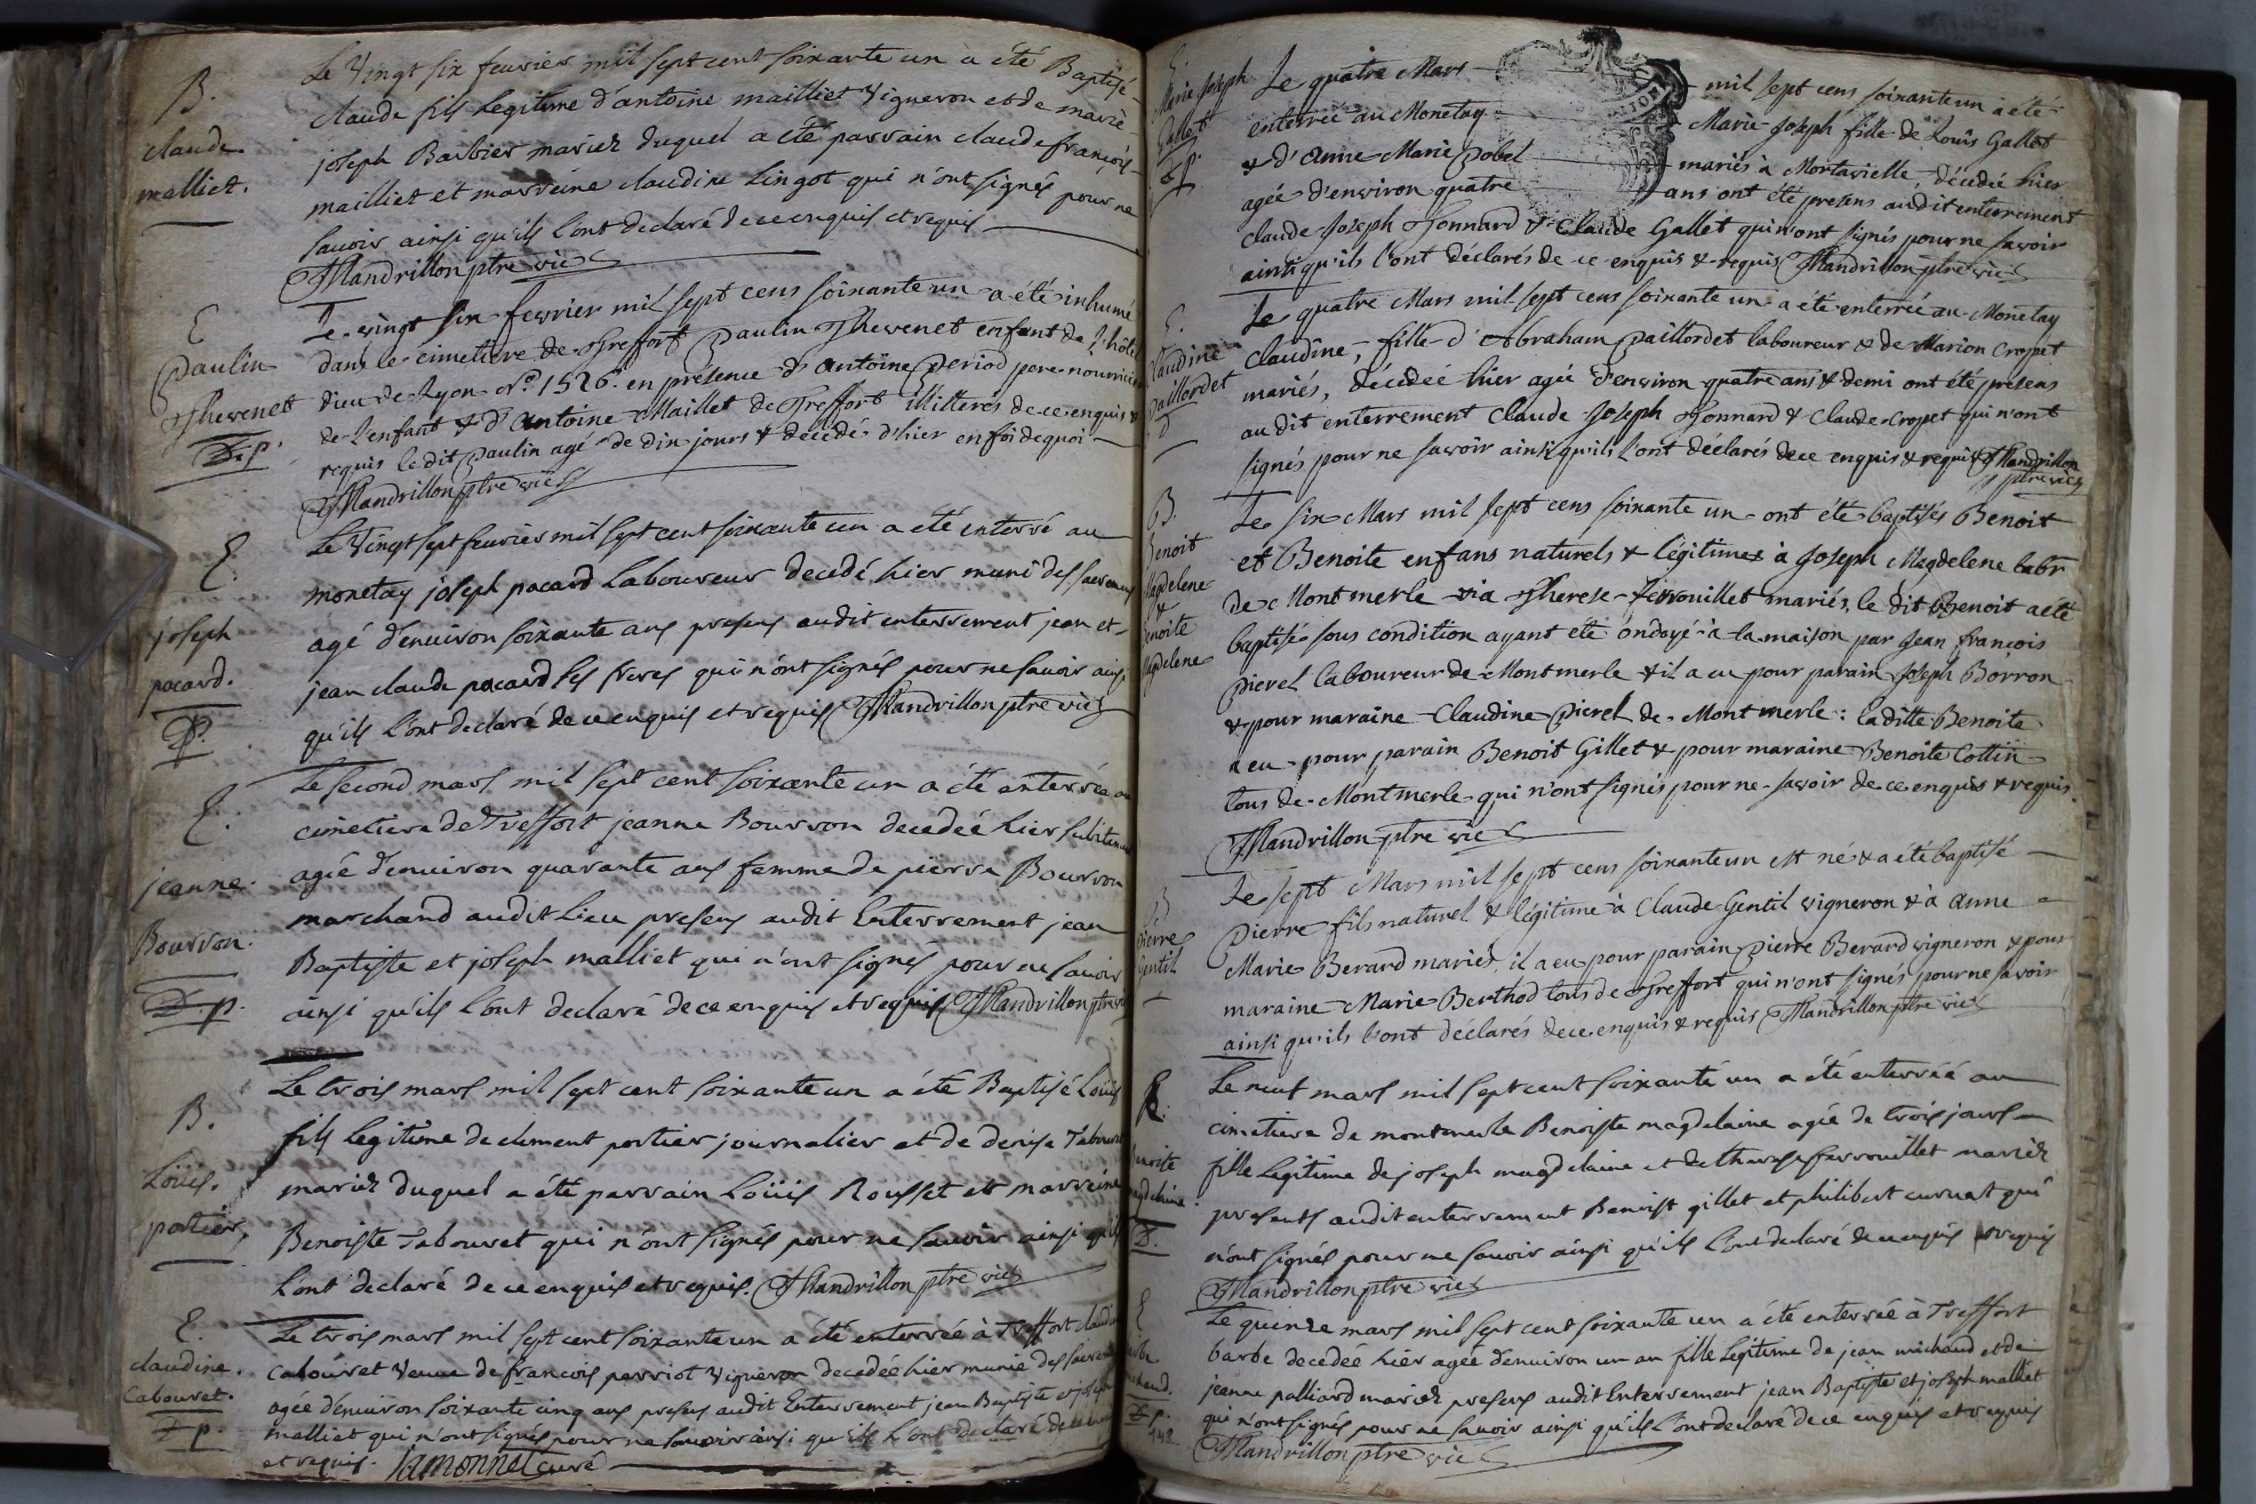 B.
claude
malliet.
Le vingt six feurier mil sept cent soixante un a été Baptisé
claude fils legitime d'antoine mailliet vigneron et de marie
joseph Barbier mariez duquel a été parrain claude françois
mailliet et marreine claudine Lingot qui n'ont signés pour ne
savoir ainsi qu'ils l'ont declaré de ce enquis et requis
Mandrillon ptre vic
E
Paulin
Thevenet
D.p.
Le vingt six fevrier mil sept cens soixante un a été inhumé
dans le cimetiere de Treffort Paulin Thevenet enfant de l'hôtel
dieu de Lyon N.o 1526. en présence d'antoine Period pere nourricier
de l'enfant & d'antoine Maillet de Treffort illitterés de ce enquis &
requis le dit Paulin agé de dix jours & decédé d'hier en foi de quoi
Mandrillon ptre vic
E.
joseph
pacard.
P.
Le vingt sept feurier mil sept cent soixante un a été enterré au
monetay joseph pacard Laboureur decedé hier muni des sacremens
agé d'enuiron soixante ans presens audit enterrement jean et
jean claude pacard ses freres qui n'ont signés pour ne sauoir ainsi
qu'ils l'ont declaré de ce enquis et requis Mandrillon ptre vic
E.
jeanne
Bourron.
D.p.
Le second mars mil sept cent soixante un a été enterrée au
cimetiere de Treffort jeanne Bourron decedeé hier subitement
agée d'enuiron quarante ans femme de pierre Bourron
marchand audit Lieu presens audit Enterrement jean
Baptiste et joseph malliet qui n'ont signés pour ne sauoir
ainsi qu'ils l'ont declaré de ce enquis et requis Mandrillon ptre vic
B.
Loüis.
portier,
Le trois mars mil sept cent soixante un a été Baptisé Loüis
fils legitime de clement portier journalier et de denise Tabouret
mariez duquel a été parrain Loüis Rousset et marreine
Benoiste Tabouret qui n'ont signés pour ne sauoir ainsi qu'ils
l'ont declaré de ce enquis et requis. Mandrillon ptre vic
E.
claudine.
Cabouret.
D p.
Le trois mars mil sept cent soixante un a été enterrée à Treffort claudine
cabouret veuue de francois perriot vigneron decedée hier munie des sacremens
agée d'enuiron soixante cinq ans presens audit Enterrement jean Baptiste et joseph
malliet qui n'ont signés pour ne sauoir ainsi qu'ils l'ont declaré de ce enquis
et requis. Jamonnet curé
Marie Joseph
Gallet
d p.
Le quatre Mars mil sept cens soixante un a été
enterrée au Monetay Marie-Joseph fille de Louïs Gallet
& d'Anne-Marie Pobel mariés à Mortavielle, décedée hier
agée d'environ quatre ans ont été presens audit enterrement
claude-Joseph Tonnard & Claude Gallet qui n'ont signés pour ne savoir
ainsi qu'ils l'ont déclarés de ce enquis & requis Mandrillon ptre vic
E.
Claudine
Paillordet
Le quatre Mars mil sept cens soixante un a été enterrée au Monetay
Claudine, fille d'Abraham Paillordet laboureur & de Marion Cropet
mariés, décedeé hier agée d'environ quatre ans & demi ont été presens
au dit enterrement Claude-Joseph Tonnard & Claude Cropet qui n'ont
signés pour ne savoir ainsi qu'ils l'ont déclarés de ce enquis & requis Mandrillon
ptre vic
B.
Benoit
Magdelene
&
Benoite
Magdelene
Le six Mars mil sept cens soixante un ont été baptisés Benoit
et Benoite enfans naturels & légitimes à Joseph Magdelene labr
de Montmerle & à Therese ferrouillet mariés, le dit Benoit a été
baptisé sous condition ayant été ondoyé à la maison par Jean françois
Pierel laboureur de Montmerle & il a eu pour parain Joseph Borron
& pour maraine Claudine Pierel de Montmerle: la ditte Benoite
a eu pour parain Benoit Gillet & pour maraine Benoite Cottin
tous de Montmerle qui n'ont signés pour ne savoir de ce enquis & requis.
Mandrillon ptre vic
B
Pierre
Gentil
Le sept Mars mil sept cens soixante un est né & a été baptisé
Pierre fils naturel & légitime à Claude Gentil vigneron & à Anne
Marie Berard mariés, il a eu pour parain Pierre Berard vigneron & pour
maraine Marie Berthod tous de Treffort qui n'ont signés pour ne savoir
ainsi qu'ils l'ont déclarés de ce enquis & requis Mandrillon ptre vic
E.
Benoite
magdelaine
D.
Le neuf mars mil sept cent soixante un a été enterréé au
cimetiere de montmerle Benoiste magdelaine agée de trois jours
fille Legitime de joseph magdelaine et de therese ferrouillet mariez
presents audit enterrement Benoist gillet et philibert curuat qui
n'ont signés pour ne sauoir ainsi qu'ils l'ont declaré de ce enquis et requis
Mandrillon ptre vic
E
barbe
michaud.
D p.
Le quinze mars mil sept cent soixante un a été enterrée à Treffort
barbe decedeé hier agée d'enuiron un an fille Legitime de jean michaud et de
jeanne palliard mariez presens audit Enterrement jean Baptiste et joseph malliet
qui n'ont signés pour ne sauoir ainsi qu'ils l'ont declaré de ce enquis et requis
Mandrillon ptre vic